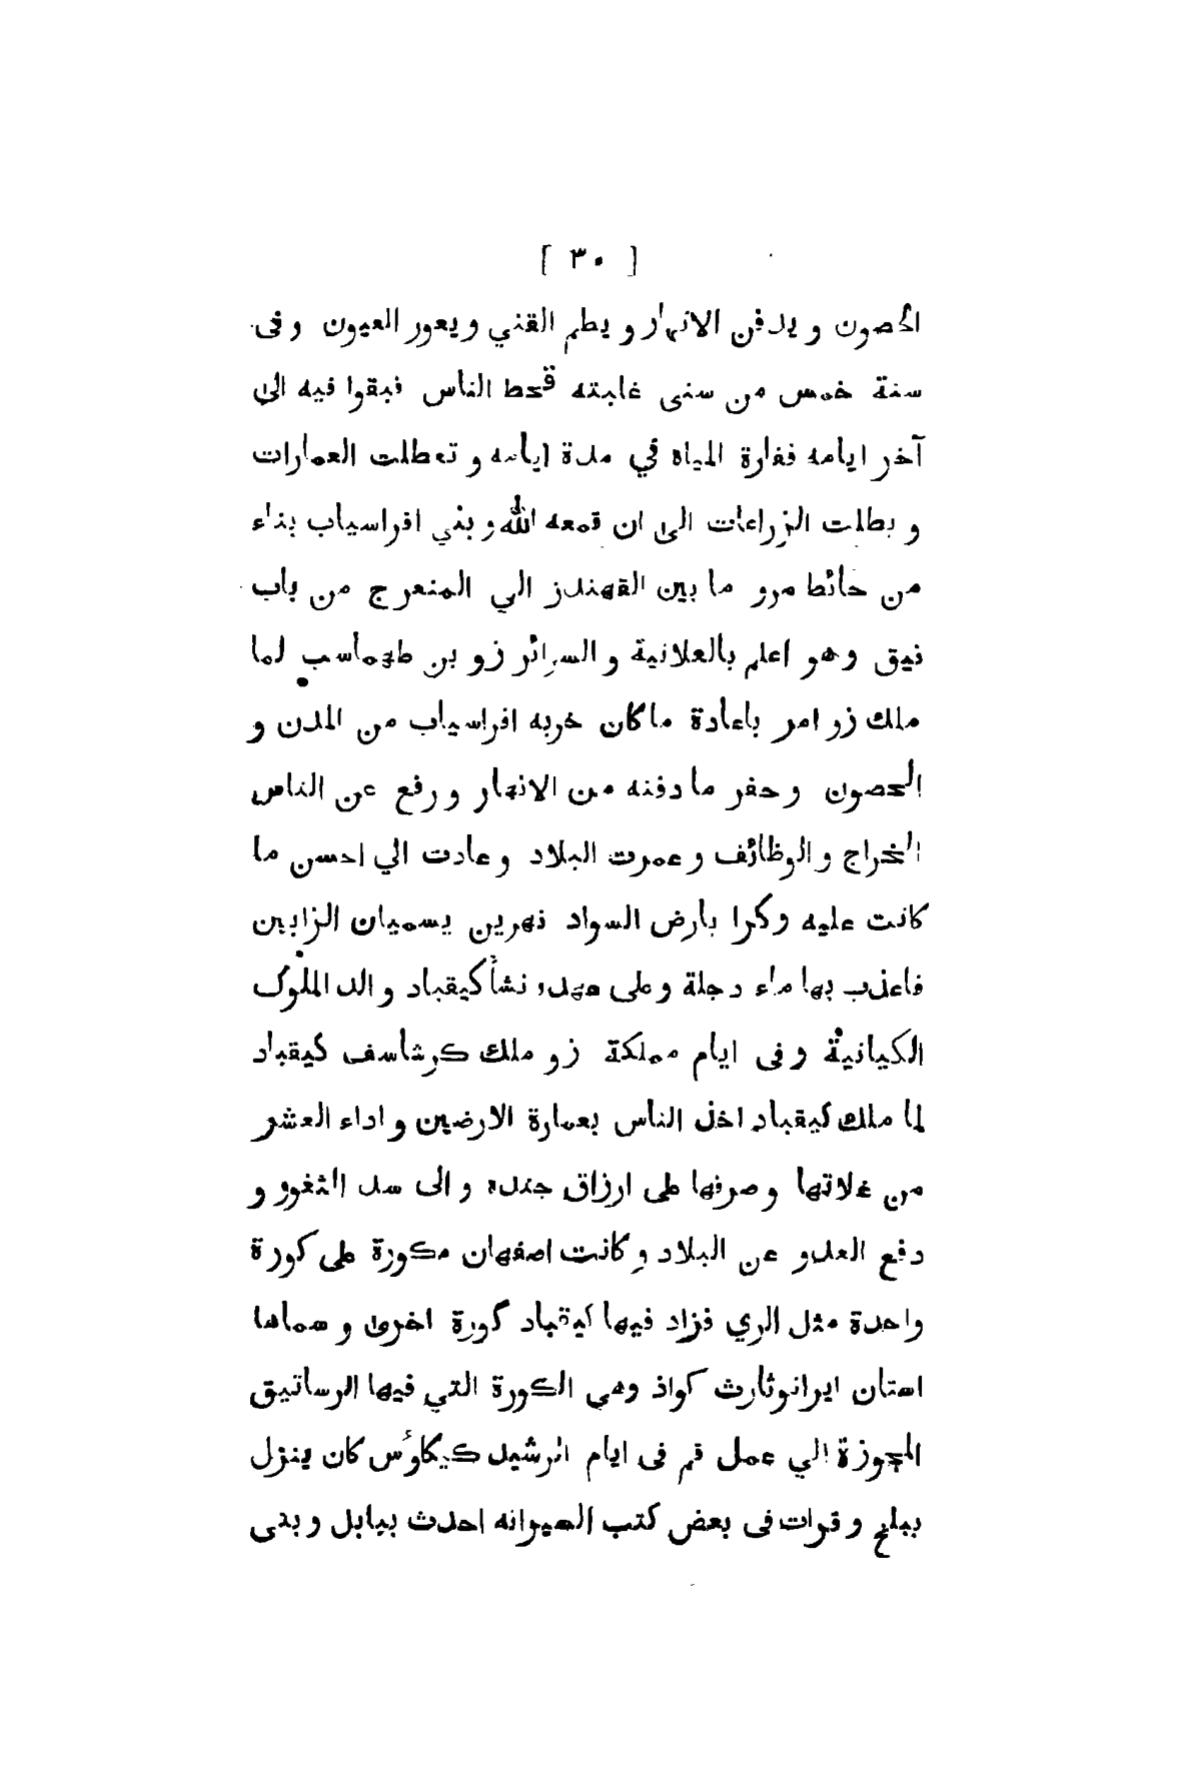 [ ٣٠ ]
الحصون و يدفن الانهار و يطم القني و يعور العيون و فى
سنة خمس من سنى غابته قحط الناس فبقوا فيه الى
آخر ايامه فغارة المياه في مدة ايامه و تعطلت العمارات
و بطلت الزراعات الى ان قمعه الله و بني افراسياب بناء
من حائط مرو ما بين القهندز الي المنعرج من باب
نيق وهو اعلم بالعلانية و السرائر زو بن طهماسب لما
ملك زو امر باعادة ما كان خربه افراسياب من المدن و
الحصون و حفر ما دفنه من الانهار و رفع عن الناس
الخراج و الوظائف و عمرت البلاد و عادت الي احسن ما
كانت عليه وكرا بارض السواد نهرين يسميان الزابين
فاعذب بها ماء دجلة و على عهده نشأ كيقباد والد الملوك
الكيانية و فى ايام مملكة زو ملك كرشاسف كيقباد
لما ملك كيقباد اخذ الناس بعمارة الارضين و اداء العشر
من غلاتها و صرفها على ارزاق جنده و الى سد الثغور و
دفع العدو عن البلاد و كانت اصفهان مكورة على كورة
واحدة مثل الري فزاد فيها كيقباد كورة اخرى و سماها
استان ايرانوثارث كواذ وهى الكورة التي فيها الرساتيق
المجوزة الي عمل قم فى ايام الرشيد كيكاؤس كان ينزل
ببلخ و قرات فى بعض كتب السير انه احدث ببابل و بنى